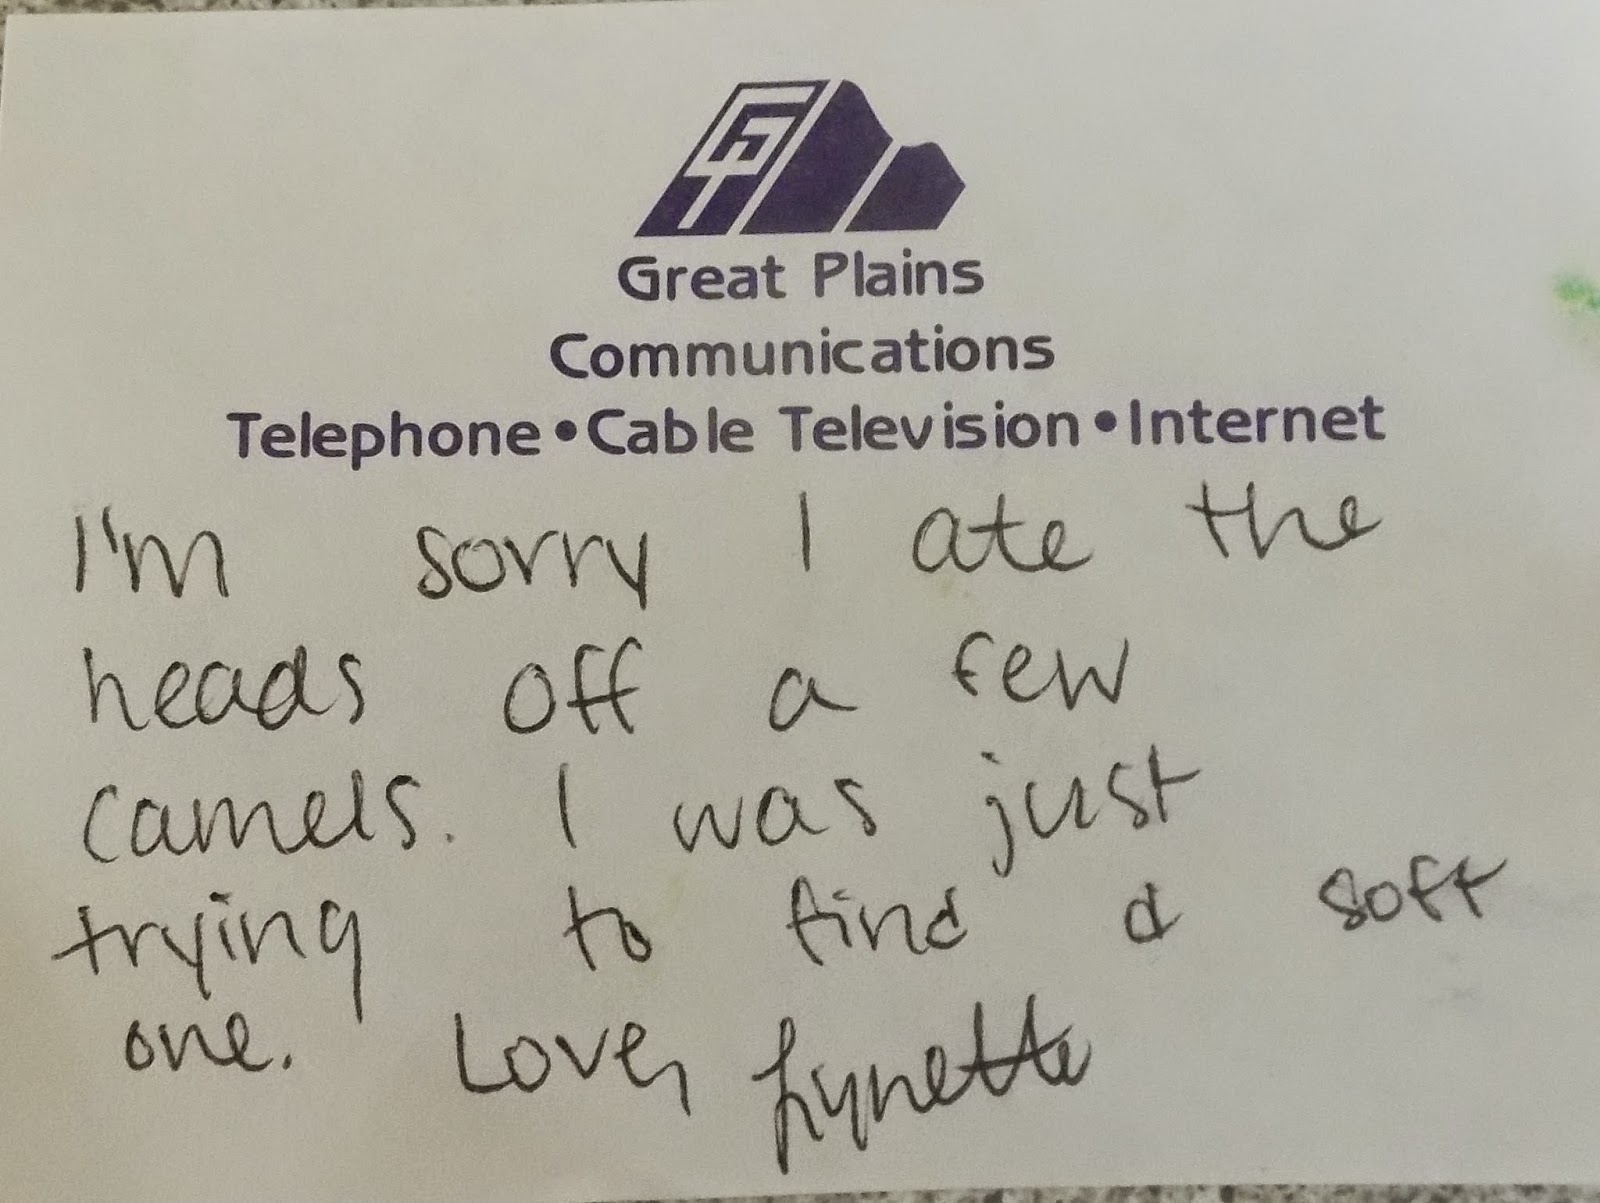 GPT
Great Plains
Communications
Telephone • Cable Television • Internet
I'm sorry I ate the
heads off a few
camels. I was just
trying to find a soft
one. Love, Lynette